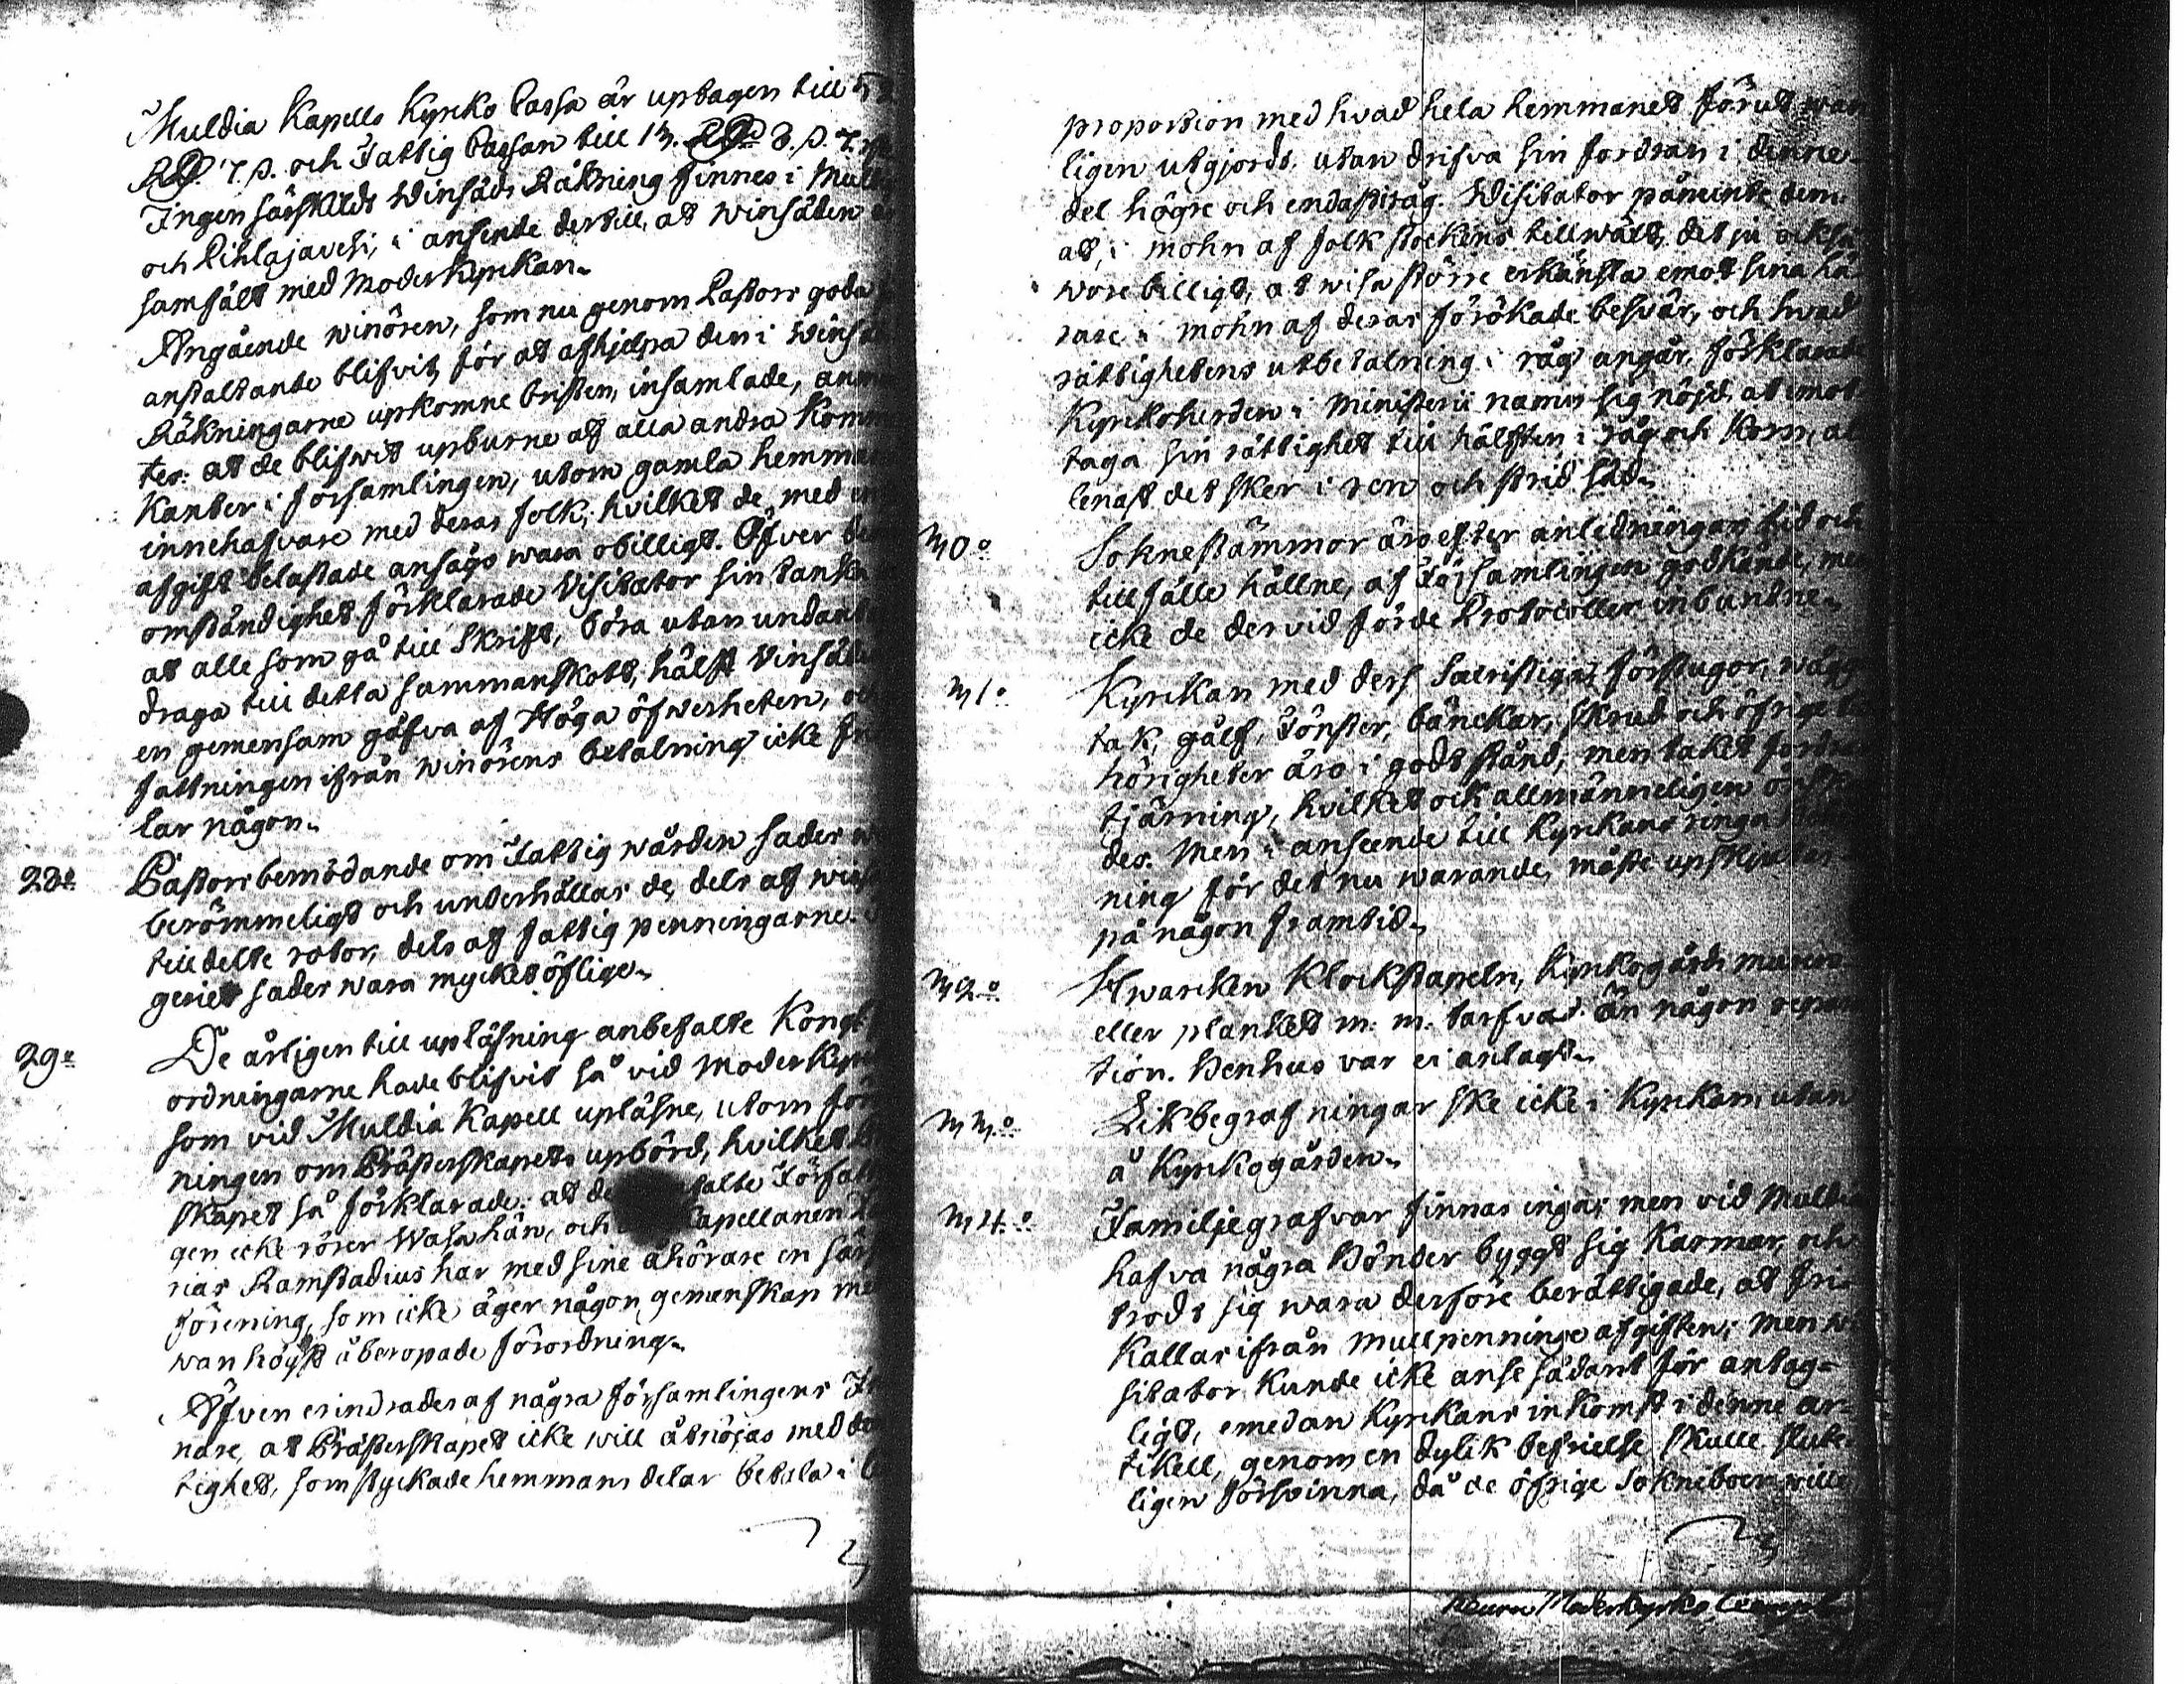 Muldia Kapells Kyrko Cassa är uptagen till 52
RD. 7. s. och Fattig Cassan till 13. RD. 3. s. 7.
Ingen särskildt Winsäds Räkning finnes i Multia
och Pihlajavesi, i anseende dertill, at winsäden är
samfält med Moderkyrkan.
Angående winören, som nu genom Pastors goda
anstaltande blifvit, för at afhjelpa den i Winsäds
Räkningarne upkomne bristen, insamlade,
tes: at de blifwit upburne af alla andra Kommu
Kanter i församlingen, utom gamla hemmans
innehafvare med deras folk; hvilket de, med
afgift belastade ansågo wara obilligt. Öfver
omständighet förklarade Visitator sin tanka
at alle som gå till Skrift, böra utan undantag
draga till detta sammanskott, hälst Vinsäden
en gemensam gåfva af Höga öfwerheten, och
fattningen ifrån winörens betalning icke
lar någon.
28º Pastors bemödande om Fattig wården sades
berömmeligt och underhållas de, dels af
till delte rotor, dels af fattig penningarne.
geriet sades wara mycket öflige.
29º De årligen till upläsning anbefalte Kongl.
ordningarne hade blifvit så vid Moderkyrkan
som vid Muldia Kapell upläsne, utom för
ningen om Prästerskapets upbörd, hvilket
skapet så förklarade: at de falte Författ
gen icke rörer Wasa hän, och apellanen
nas Ramstadius har med sine åhörare en
förening, som icke äger någon gemenskap med
wan högst åberopade förordning.
Äfven erindrades af några församlingens
nare, at Prästerskapet icke will åtnöjas med
tighet, som styckade hemmans delar betala i
proportion med hvad hela hemmanet förut wan
ligen utgjordt, utan drifva sin fordran i denne
del högre och endast i råg. Visitator påminte dem
at, i mohn af folk stockens tillwäxt, det ju också
wore billigt, at wisa större erkänsla emot sina lä
rare i mohn af deras förökade besvär, och hvad
rättighetens utbetalning i råg angår, förklarade
Kyrkoherden i Ministerii namn sig nöjd, at emot
taga sin rättighet till hälften i råg och Korn, al
lenast det sker i ren och strid säd.
30º Soknestämmor äro efter anledningar, tid och
tillfälle hållne, af Församlingen godkände, men
icke de dervid förde Protocoller inbundne.
31º Kyrkan med dess Sacristiga, förstugor, wägg
tak, gålf, Fönster, bänckar, skrud och öfrige
hörigheter äro i godt stånd, men taket fordra
tjärning, hvilket ock allmänneligen önska
des. Men i anseende till Kyrkans ringa
ning för det nu warande, måste upskjutas
på någon framtid.
32º Hwarcken Klockstapeln, Kyrkogårds muren
eller planket m. m. tarfvar än någon repara
tion. Benhus var ei anlagt.
33º Lik begrafningar ske icke i Kyrkan, utan
å Kyrkogården.
34º Familjegrafvar finnas inga; men vid Multia
hafva några Bönder byggt sig Karmar och
trodt sig wara derföre berättigade, at fri
kallas ifrån mullpenninge afgiften; men Vi
sitator kunde icke anse sådant för antag-
ligt, emedan Kyrkans inkomst i denne ar-
tikell, genom en dylik befrielse skulle slute
ligen försvinna, då de öfrige Sokneboen wille
Moderkyrko